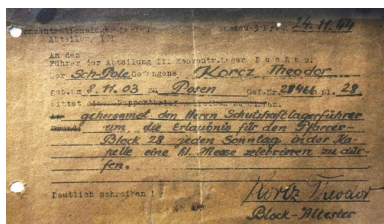 Konzentrationslager Dachau 3 K, den 24.11.44
Abteilung III
An den
Führer der Abteilung III Konzentr.Lager Dachau:
Der Sch-Pole Gefangene Korcz Theodor
geb. am 8.11.03 zu Posen Gef.Nr. 28466 Bl. 28
bittet
gehorsamst den Herrn Schutzhaftlagerführer
um die Erlaubnis für den Pfarrer-
Block 28 jeden Sonntag in der Ka-
pelle eine hl. Messe zelebrieren zu dür-
fen.
Deutlich schreiben! Korcz Theodor
Block-Ältester